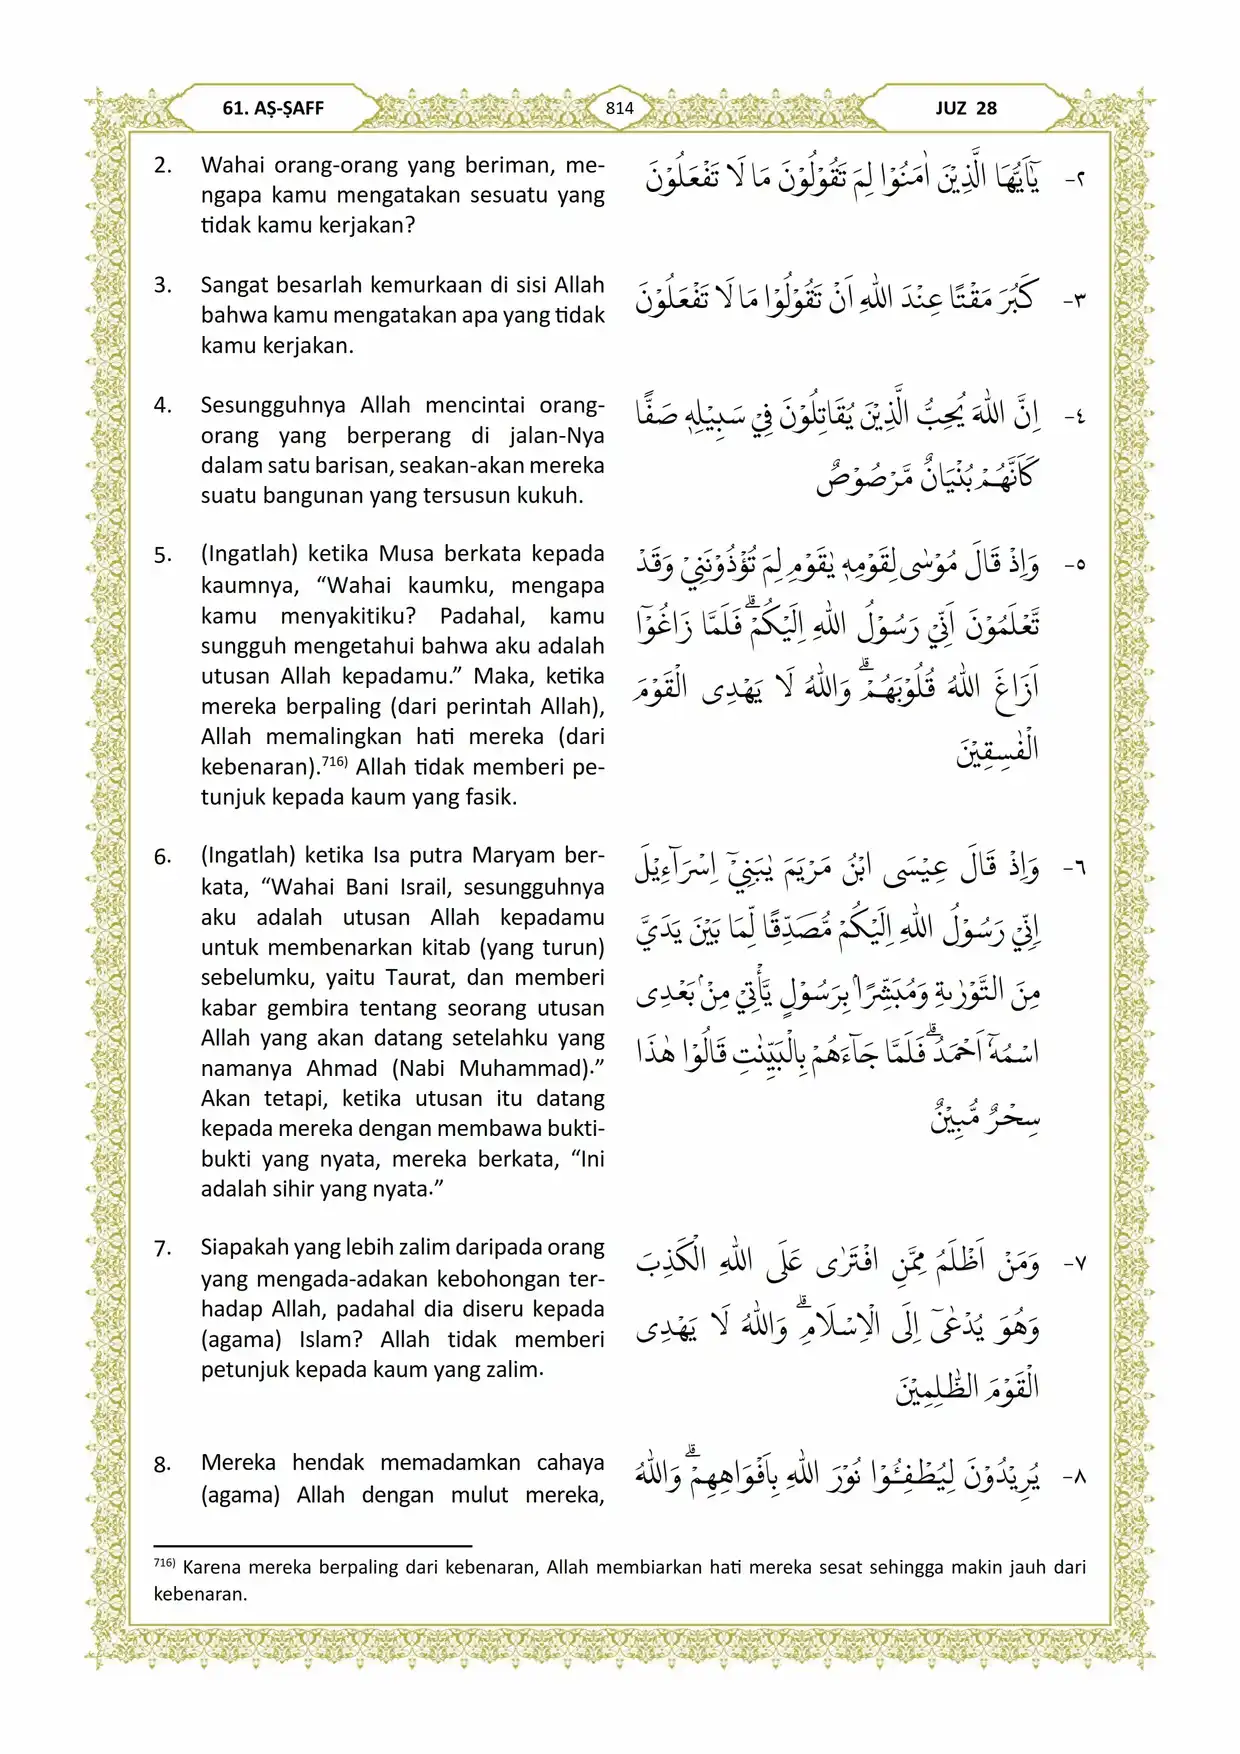 61. AṢ-ṢAFF
814
JUZ 28
2. Wahai orang-orang yang beriman, me-
ngapa kamu mengatakan sesuatu yang
tidak kamu kerjakan?
٢- يٰٓاَيُّهَا الَّذِيْنَ اٰمَنُوْا لِمَ تَقُوْلُوْنَ مَا لَا تَفْعَلُوْنَ
3. Sangat besarlah kemurkaan di sisi Allah
bahwa kamu mengatakan apa yang tidak
kamu kerjakan.
٣- كَبُرَ مَقْتًا عِنْدَ اللّٰهِ اَنْ تَقُوْلُوْا مَا لَا تَفْعَلُوْنَ
4. Sesungguhnya Allah mencintai orang-
orang yang berperang di jalan-Nya
dalam satu barisan, seakan-akan mereka
suatu bangunan yang tersusun kukuh.
٤- اِنَّ اللّٰهَ يُحِبُّ الَّذِيْنَ يُقَاتِلُوْنَ فِيْ سَبِيْلِهٖ صَفًّا
كَاَنَّهُمْ بُنْيَانٌ مَّرْصُوْصٌ
5. (Ingatlah) ketika Musa berkata kepada
kaumnya, “Wahai kaumku, mengapa
kamu menyakitiku? Padahal, kamu
sungguh mengetahui bahwa aku adalah
utusan Allah kepadamu.” Maka, ketika
mereka berpaling (dari perintah Allah),
Allah memalingkan hati mereka (dari
kebenaran).716) Allah tidak memberi pe-
tunjuk kepada kaum yang fasik.
٥- وَاِذْ قَالَ مُوْسٰى لِقَوْمِهٖ يٰقَوْمِ لِمَ تُؤْذُوْنَنِيْ وَقَدْ
تَّعْلَمُوْنَ اَنِّيْ رَسُوْلُ اللّٰهِ اِلَيْكُمْۗ فَلَمَّا زَاغُوْٓا
اَزَاغَ اللّٰهُ قُلُوْبَهُمْۗ وَاللّٰهُ لَا يَهْدِى الْقَوْمَ
الْفٰسِقِيْنَ
6. (Ingatlah) ketika Isa putra Maryam ber-
kata, “Wahai Bani Israil, sesungguhnya
aku adalah utusan Allah kepadamu
untuk membenarkan kitab (yang turun)
sebelumku, yaitu Taurat, dan memberi
kabar gembira tentang seorang utusan
Allah yang akan datang setelahku yang
namanya Ahmad (Nabi Muhammad).”
Akan tetapi, ketika utusan itu datang
kepada mereka dengan membawa bukti-
bukti yang nyata, mereka berkata, “Ini
adalah sihir yang nyata.”
٦- وَاِذْ قَالَ عِيْسَى ابْنُ مَرْيَمَ يٰبَنِيْٓ اِسْرَاۤءِيْلَ
اِنِّيْ رَسُوْلُ اللّٰهِ اِلَيْكُمْ مُّصَدِّقًا لِّمَا بَيْنَ يَدَيَّ
مِنَ التَّوْرٰىةِ وَمُبَشِّرًاۢ بِرَسُوْلٍ يَّأْتِيْ مِنْۢ بَعْدِى
اسْمُهٗٓ اَحْمَدُۗ فَلَمَّا جَاۤءَهُمْ بِالْبَيِّنٰتِ قَالُوْا هٰذَا
سِحْرٌ مُّبِيْنٌ
7. Siapakah yang lebih zalim daripada orang
yang mengada-adakan kebohongan ter-
hadap Allah, padahal dia diseru kepada
(agama) Islam? Allah tidak memberi
petunjuk kepada kaum yang zalim.
٧- وَمَنْ اَظْلَمُ مِمَّنِ افْتَرٰى عَلَى اللّٰهِ الْكَذِبَ
وَهُوَ يُدْعٰىٓ اِلَى الْاِسْلَامِۗ وَاللّٰهُ لَا يَهْدِى
الْقَوْمَ الظّٰلِمِيْنَ
8. Mereka hendak memadamkan cahaya
(agama) Allah dengan mulut mereka,
٨- يُرِيْدُوْنَ لِيُطْفِـُٔوْا نُوْرَ اللّٰهِ بِاَفْوَاهِهِمْۗ وَاللّٰهُ
716) Karena mereka berpaling dari kebenaran, Allah membiarkan hati mereka sesat sehingga makin jauh dari
kebenaran.